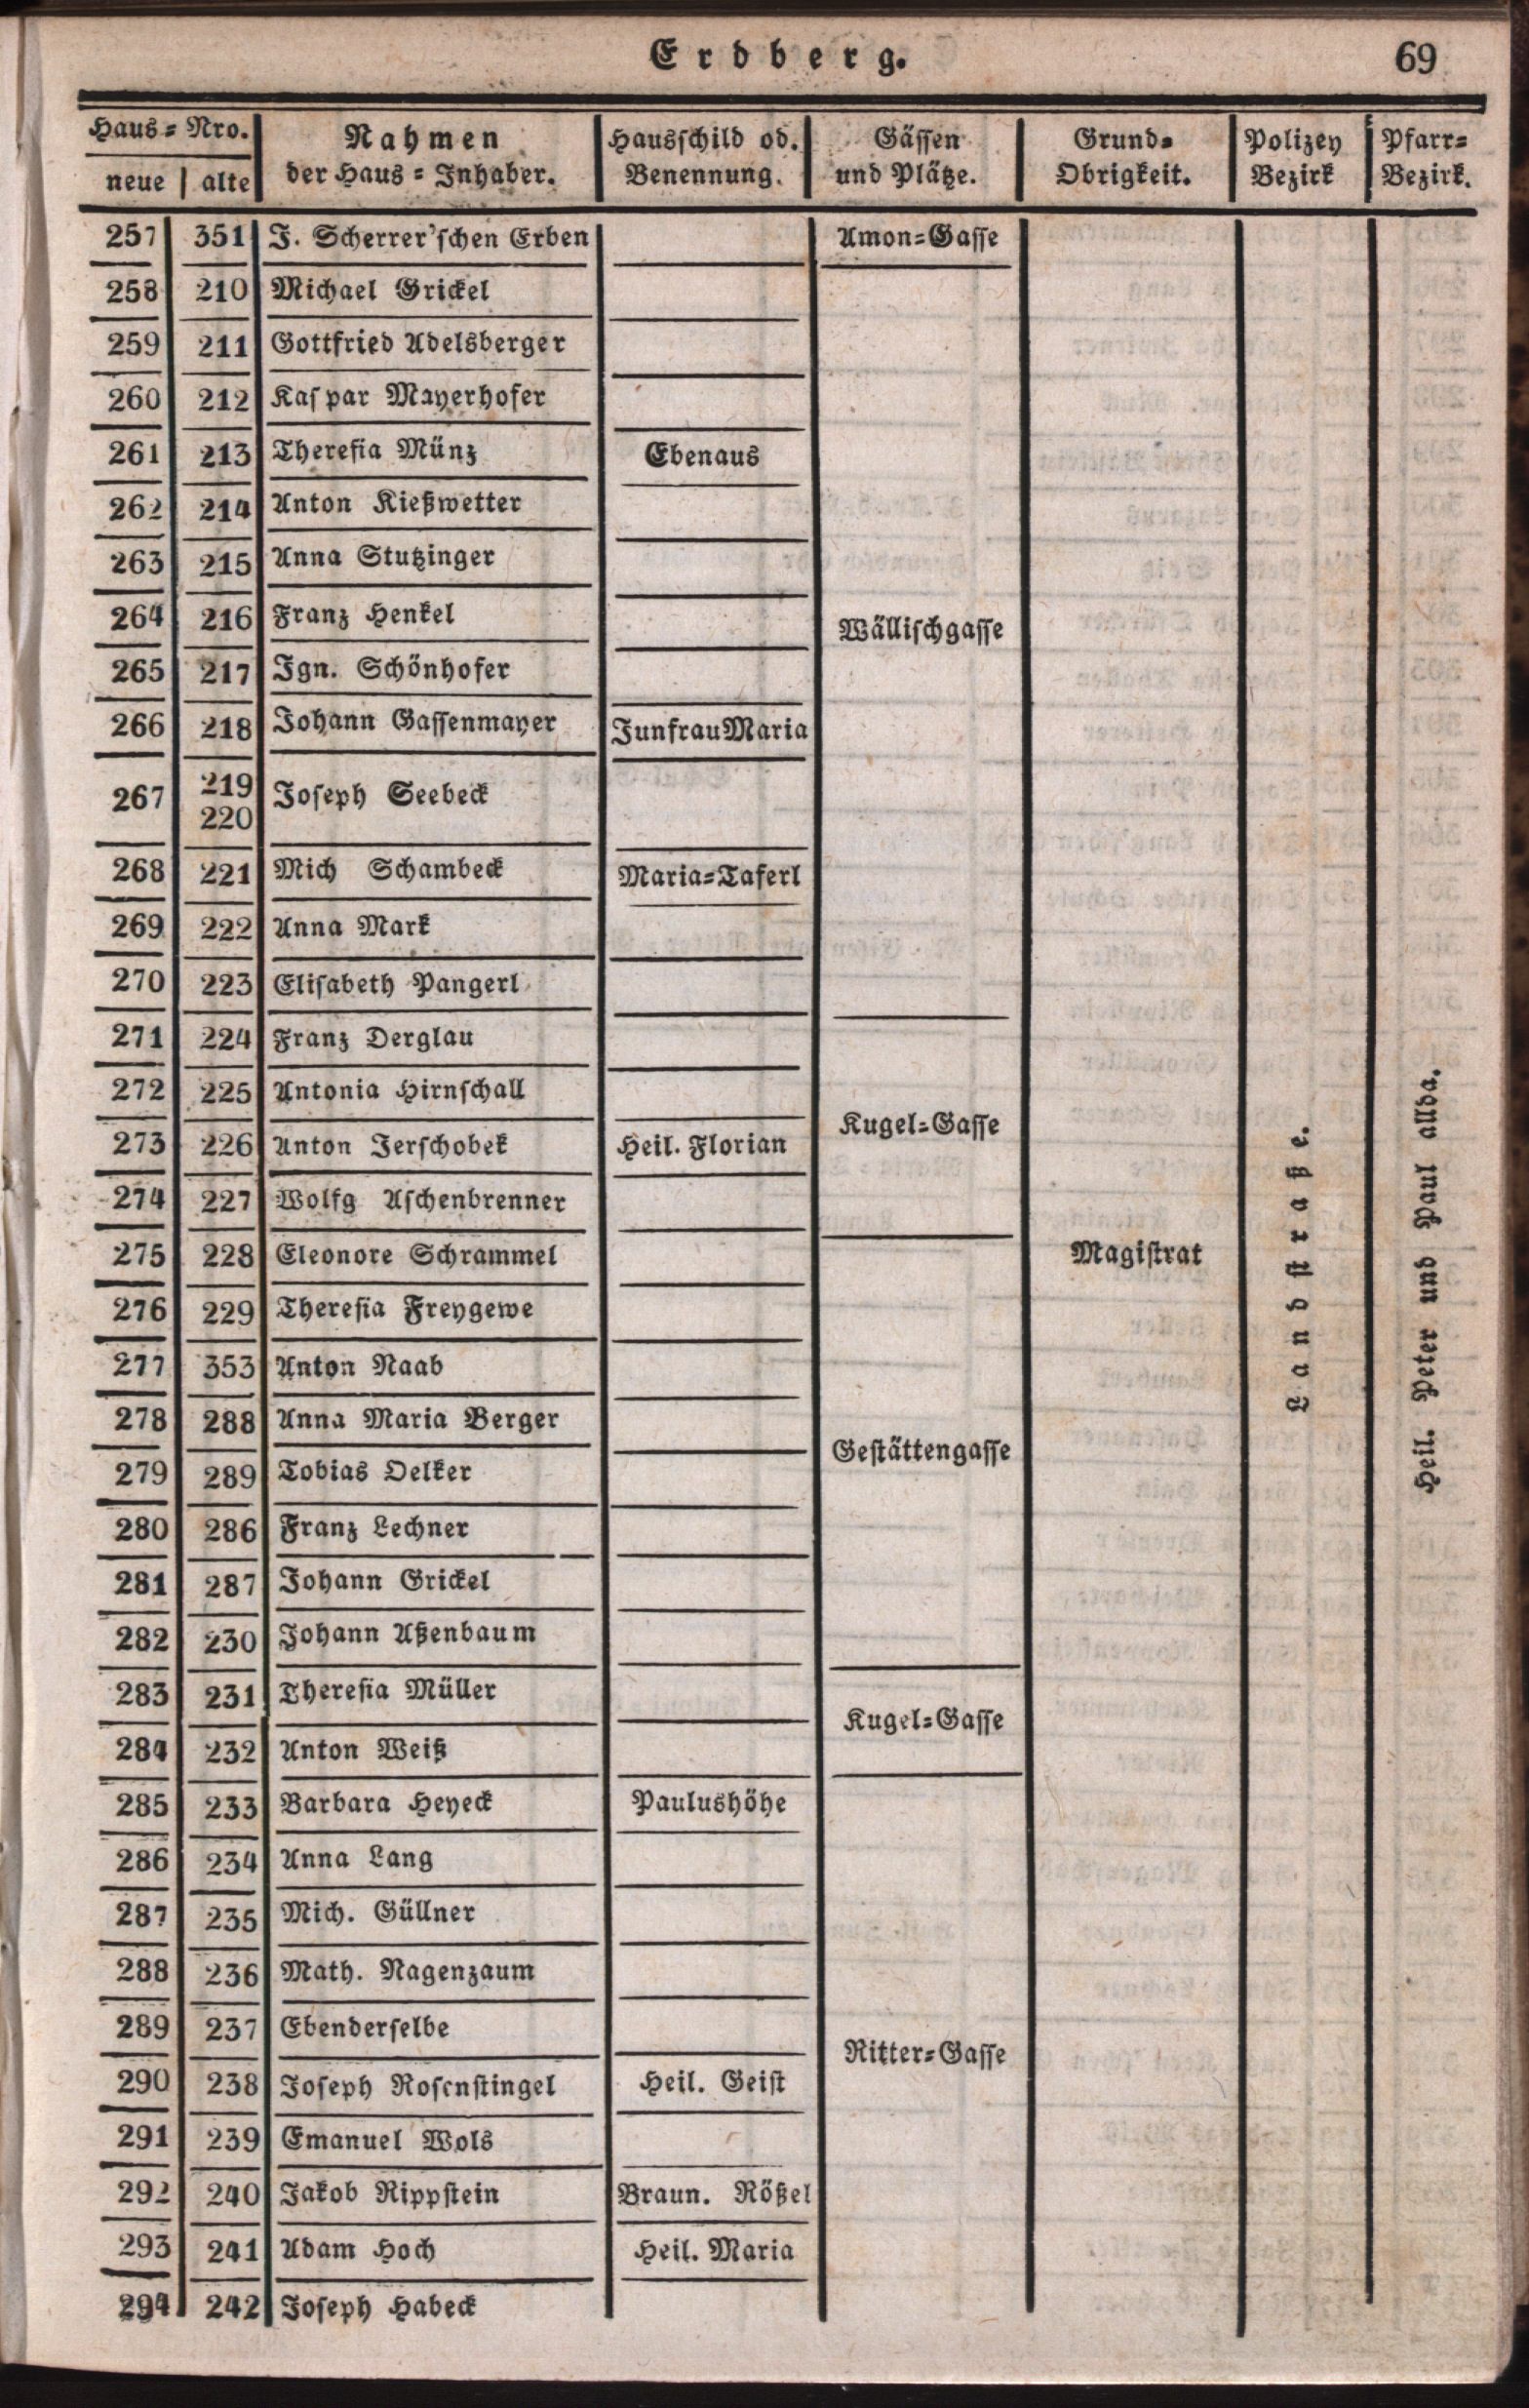 Erdberg. 69
Haus-Nro. Nahmen Hausschild od. Gässen Grund- Polizey Pfarr-
neue alte der Haus-Inhaber. Benennung. und Plätze. Obrigkeit. Bezirk Bezirk.
257 351 J. Scherrer'schen Erben Amon-Gasse
258 210 Michael Grickel
259 211 Gottfried Adelsberger
260 212 Kaspar Mayerhofer
261 213 Theresia Münz Ebenaus
262 214 Anton Kießwetter
263 215 Anna Stutzinger
264 216 Franz Henkel Wällischgasse
265 217 Ign. Schönhofer
266 218 Johann Gassenmayer Junfrau Maria
219
267 Joseph Seebeck
220
268 221 Mich Schambeck Maria-Taferl
269 222 Anna Mark
270 223 Elisabeth Pangerl
271 224 Franz Derglau
272 225 Antonia Hirnschall
Kugel-Gasse
273 226 Anton Jerschobek Heil. Florian
274 227 Wolfg Aschenbrenner
275 228 Eleonore Schrammel Magistrat
276 229 Theresia Freygewe
277 353 Anton Naab
278 288 Anna Maria Berger
Gestättengasse
279 289 Tobias Oelker
280 286 Franz Lechner
281 287 Johann Grickel
282 230 Johann Aßenbaum
283 231 Theresia Müller
Kugel-Gasse
284 232 Anton Weiß
285 233 Barbara Heyeck Paulushöhe
286 234 Anna Lang
287 235 Mich. Güllner
288 236 Math. Nagenzaum
289 237 Ebenderselbe
Ritter-Gasse
290 238 Joseph Rosenstingel Heil. Geist
291 239 Emanuel Wols
292 240 Jakob Rippstein Braun. Rößel
293 241 Adam Hoch Heil. Maria
294 242 Joseph Habeck
Landstraße.
Heil. Peter und Paul allda.